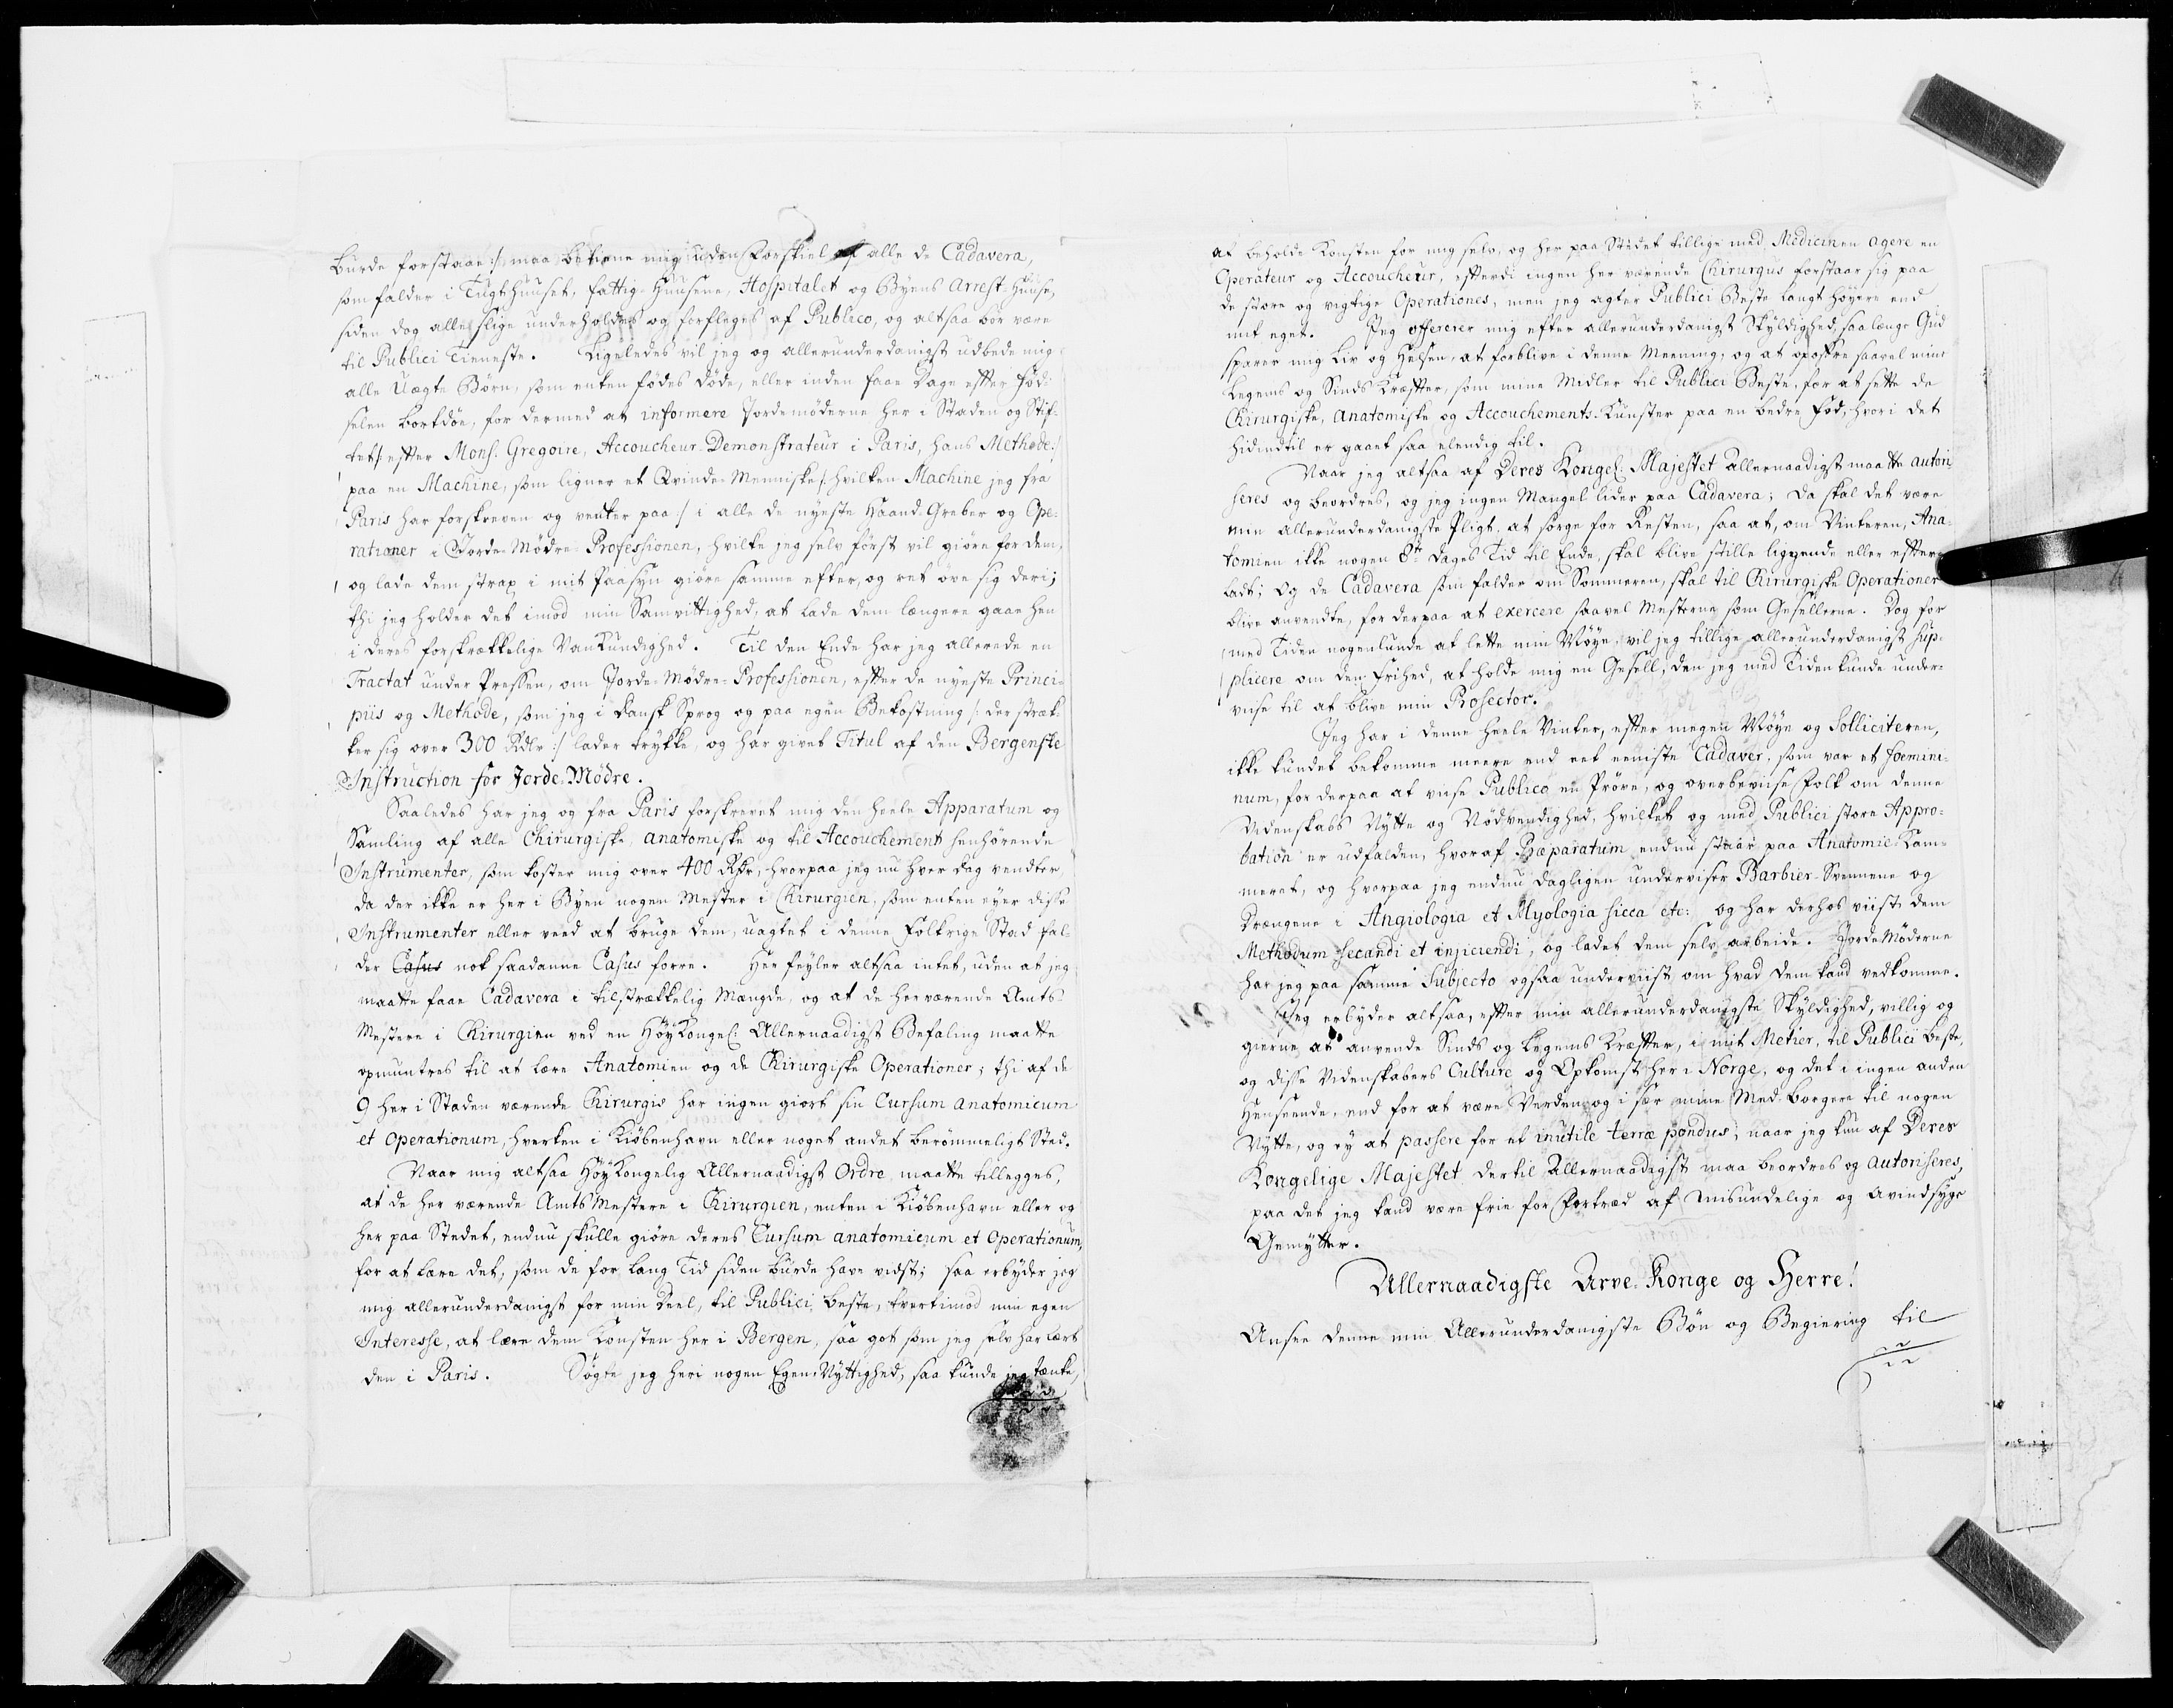 burde forstaae :/ maa betiene mig uden Forskiel af alle de Cadavera,
som falder i Tugthuuset, fattig-Huusene, Hospitalet og Byens Arrest-Huuse,
siden dog alle slige underholdes og forfleges af Publico, og altsaa bör være
til Publici Tieneste. Ligeledes vil jeg og allerunderdanigst udbede mig
alle Uægte Börn, som enten födes döde, eller inden faae Dage efter Föd-
selen bortdöe, for dermed at informere Jordemöderne her i Staden og Stif-
tet /: efter Mons. Gregoire, Accoucheur-Demonstrateur i Paris, hans Methode :/
paa en Machine, som ligner et Qvinde-Menniske /: hvilken Machine jeg fra
Paris har forskreven og venter paa :/ i alle de nyeste Haand-Greber og Ope-
rationer i Jorde-Mödre-Professionen, hvilke jeg selv först vil giöre for dem,
og lade dem strax i mit Paasyn giöre samme efter, og ret öve sig deri;
thi jeg holder det imod min Samvittighed, at lade dem længere gaae hen
i deres forskrækkelige VanKundighed. Til den Ende har jeg allerede en
Tractat under Pressen, om Jorde-Mödre-Professionen, efter de nyeste Princi-
piis og Methode, som jeg i Dansk Sprog og paa egen Bekostning /: der stræk-
ker sig over 300 Rdlr :/ lader trykke, og har givet Titul af den Bergenske
Instruction for Jorde-Mödre.
Saaledes har jeg og fra Paris forskrevet mig den heele Apparatum og
Samling af alle Chirurgiske, anatomiske og til Accouchement henhörende
Instrumenter, som koster mig over 400 Rdlr, hvorpaa jeg nu hver dag vendter,
da der ikke er her i Byen nogen Mester i Chirurgien, som enten eyer disse
Instrumenter eller veed at bruge dem, uagtet i denne Folkrige Stad fal-
der Casus nok saadanne Casus forre. Her feyler altsaa intet, uden at jeg
maatte faae Cadavera i tilstrækkelig Mængde, og at de herværende Amts-
Mestere i Chirurgien ved en HöyKongel: Allernaadigst Befaling maatte
opmuntres til at lære Anatomien og de Chirurgiske Operationer; thi af de
9 her i Staden værende Chirurgis har ingen giort sin Cursum anatomicum
et Operationum, hverken i Kiöbenhavn eller noget andet berömmeligt Sted.
Naar mig altsaa HöyKongelig Allernaadigst Ordre maatte tillegges,
at de her værende Amts Mestere i Chirurgien, enten i Kiöbenhavn eller og
her paa Stedet, endnu skulle giöre deres Cursum anatomicum et Operationum,
for at lære det, som de for lang Tid siden burde have vidst; saa erbyder jeg
mig allerunderdanigst for min Deel, til Publici beste, tvertimod min egen
Interesse, at lære dem Konsten her i Bergen, saa got som jeg selv har lært
den i Paris. Sögte jeg heri nogen Egen-Nyttighed, saa kunde jeg tænke,
at beholde Konsten for mig selv, og her paa Stedet tillige med Medicinen agere en
Operateur og Accoucheur, efterdi ingen her værende Chirurgus forstaar sig paa
de store og vigtige Operationes, men jeg agter Publici Beste langt höyere end
mit eget. Jeg offererer mig efter allerunderdanigst Skyldighed, saa længe Gud
sparer mig Liv og Helsen, at forblive i denne Meening, og at opofre saavel mine
Legems og Sinds Kræfter, som mine Midler til Publici Beste, for at sette de
Chirurgiske, Anatomiske og Accouchements-Kunster paa en bedre Fod, hvori det
hidindtil er gaaet saa elendig til.
Naar jeg altsaa af Deres Kongel: Majestet Allernaadigst maatte autori-
seres og beordres, og jeg ingen Mangel lider paa Cadavera; da skal det være
min allerunderdanigste Pligt at sörge for Resten, saa at, om Vinteren, Ana-
tomien ikke nogen 8te Dages Tid til Ende, skal blive stille liggende eller efter-
ladt; Og de Cadavera som falder om Sommeren, skal til Chirurgiske Operationer
blive anvendte, for derpaa at exercere saavel Mesterne som Gesellerne. Dog for
med Tiden nogenlunde at lette min Möye, vil jeg tillige allerunderdanigst sup-
plicere om den Frihed, at holde mig en Gesell, den jeg med Tiden kunde under-
viise til at blive min Prosector.
Jeg har i denne heele Vinter, efter megen Möye og Solliciteren,
ikke kundet bekomme meere end eet eeniste Cadaver, som var et foemini-
num, for derpaa at viise Publico en Pröve, og overbeviise Folk om denne
Videnskabs Nytte og Nödvendighed, hvilket og med Publici store Appro-
bation er udfalden, hvoraf Præparatum endnu staar paa Anatomie-Kam-
meret, og hvorpaa jeg endnu dagligen underviser Barbier-Svennene og
Drengene i Angiologia et Myologia sicca etc: og har derhos viist dem
Methodum secandi et injiciendi, og ladet dem selv arbeide. JordeMöderne
har jeg paa samme Subjecto ogsaa underviist om hvad dem kand vedkomme.
Jeg erbyder altsaa, efter min allerunderdanigste Skyldighed, villig og
gierne at anvende Sinds og Legems Kræfter, i mit Metier, til Publici beste,
og disse Videnskabers Culture og Opkomst her i Norge, og det i ingen anden
Henseende, end for at være Verden og i sær mine Med-borgere til nogen
Nytte, og ey at passere for et inutile terræ pondus; naar jeg kun af Deres
Kongelige Majestet dertil Allernaadigst maa beordres og autoriseres,
paa det jeg kand være frie for Fortræd af misundelige og avindsyge
Gemytter.
Allernaadigste Arve-Konge og Herre!
Ansee denne min Allerunderdanigste Bön og Begiering til